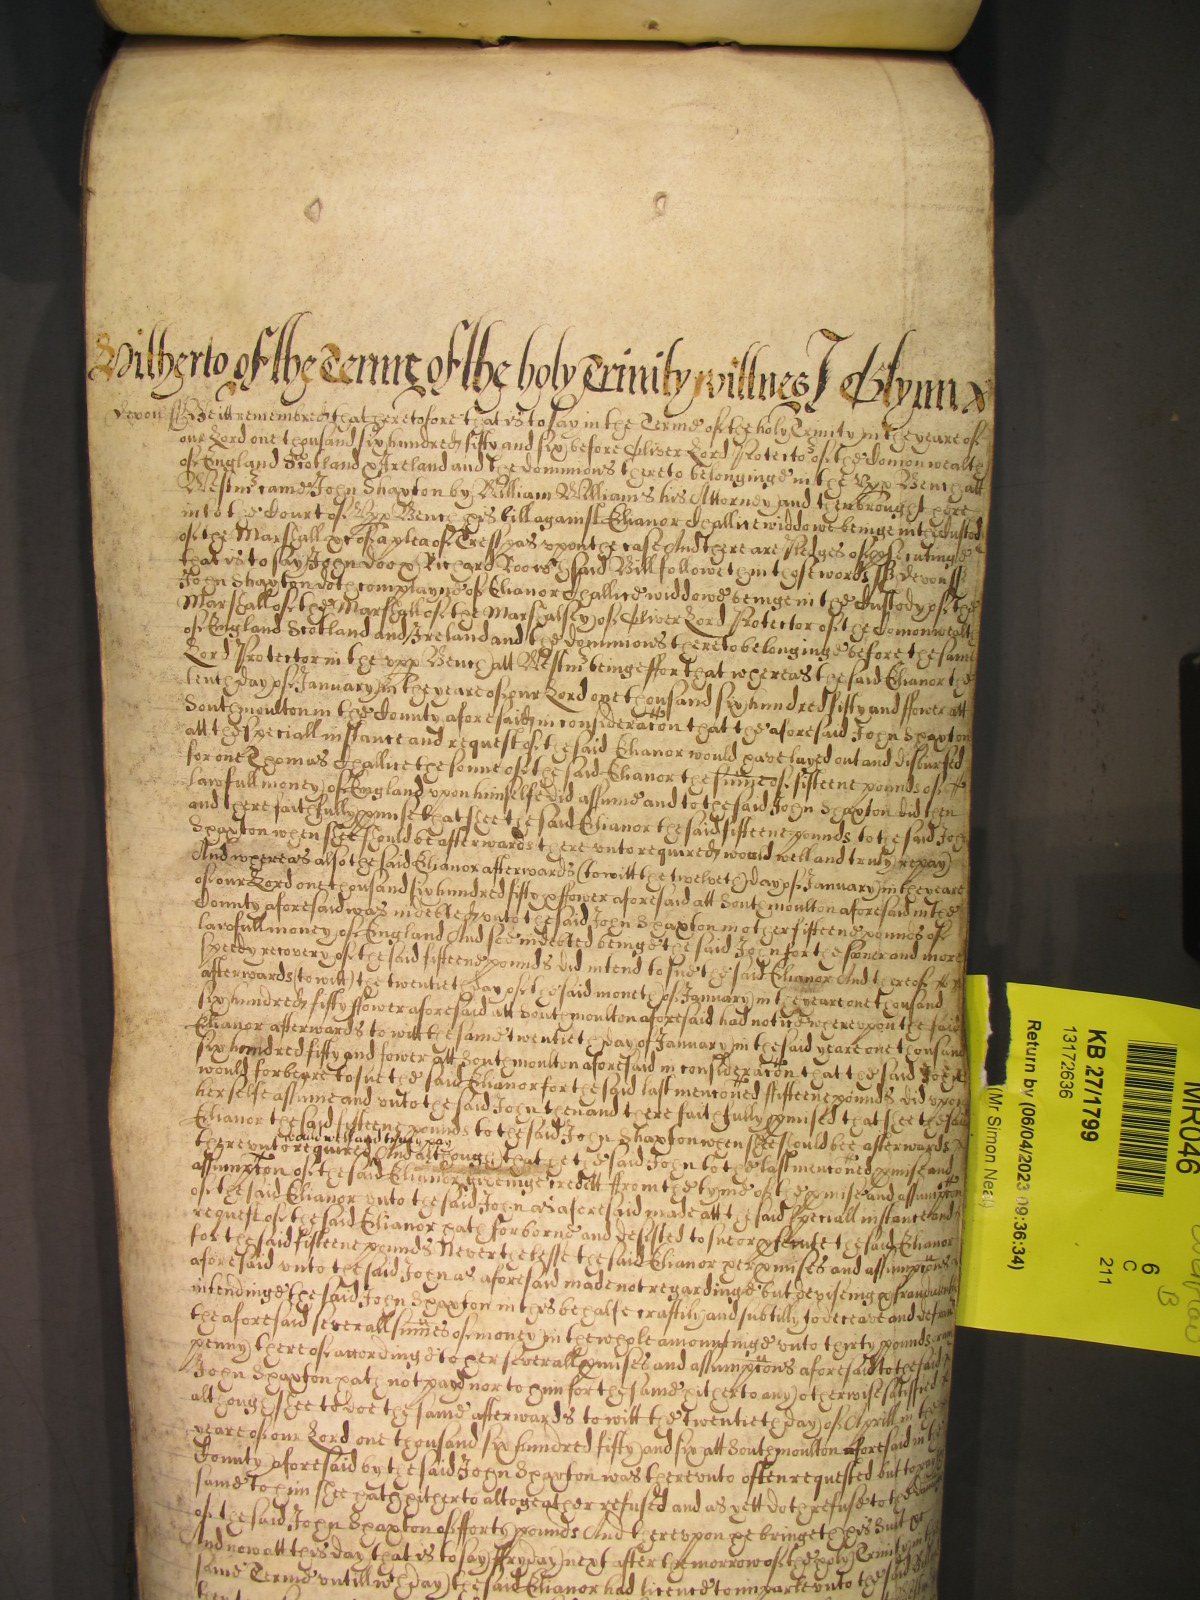 Hitherto of the Terme of the holy Trinity wittnes J Glynn
Devon ss Be itt remembred that heretofore that is to say in the Terme of the holy Trinity in the yeare of
our Lord one thousand six hundred fifty and six before Oliver Lord Protector of the Comonwealth
of England Scotland & Ireland and the dominions thereto belonginge in the Upp Bench att
Westmr came John Shapton by William Williams his Attorney and then brought here
into the Court of Upp Bench his bill against Elianor Challice widdowe beinge in the Custody
of the Marshall &c of a plea of Tresspas upon the case And there are Pledges of prosecutinge
that is to say John Doo & Richard Roo wch said Bill followeth in those words ss Devon ss
John Shapton doth complayne of Elianor Challice widdowe beinge in the Custody of the
Marshall of the Marshall of the Marshalsey of Oliver Lord Protector of the Comonwealth
of England Scotland and Ireland and the dominions thereto belonginge before the same
Lord Protector in the upp Bench att Westmr beinge ffor that whereas the said Elianor the
tenth day of January in the yeare of our Lord one thousand six hundred fifty and ffower att
Southmoulton in the County aforesaid in consideracon that the aforesaid John Shapton
att the speciall instance and request of the said Elianor would have layed out and disbursed
for one Thomas Challice the sonne of the said Elianor the summe of fifteene pounds of
lawfull money of England upon himselfe did assume and to the said John Shapton did then
and there faithfully pmise that shee the said Elianor the said fifteene pounds to the said John
Shapton when shee should be afterwards there unto required would well and truly repay
And whereas also the said Elianor afterwards (to witt the twelveth day of January) in the yeare
of our Lord one thousand six hundred fifty & ffower aforesaid att Southmoulton aforesaid in the
County aforesaid was indebted unto the said John Shapton in other fifteene pounds of
lawfull money of England And soe indebted beinge the said John for the sooner and more
speedy recovery of the said fifteene pounds did intend to sue the said Elianor And thereof
afterwards (to witt) the twentieth day of the said moneth of January in the yeare one thousand
six hundred fifty ffower aforesaid att Southmoulton aforesaid had notice whereupon the said
Elianor afterwards to witt the same twentieth day of January in the said yeare one thousand
six hundred fifty and fower att Southmoulton aforesaid in consideracon that the said John
would forbeare to sue the said Elianor for the said last mentioned ffifteene pounds did upon
her selfe assume and unto the said John then and there faithfully pmised that shee the said
Elianor the said fifteene pounds to the said John Shapton when shee should bee afterwards
would well and truly pay
thereunto required And although that he the said John to the last mentioned pmise and
assumpton of the said Elianor giveinge credett ffrom the tyme of the pmise and assumpton
of the said Elianor unto the said John as aforesaid made att the said speciall instance and
request of the said Elianor hath forborne and desisted to sue or psecute the said Elianor
for the said fifteene pounds Neverthelesse the said Elianor her pmises and assumptons
aforesaid unto the said John as aforesaid made not regardinge but deviseing & fraudulently
intendinge the said John Shapton in this behalfe craftily and subtilly to deceave and defraud
the aforesaid severall summes of money in the whole amountinge unto thirty pounds or any
penny thereof accordinge to her severall pmises and assumptons aforesaid to the said
John Shapton hath not payd nor to him for the same hitherto any otherwise satisfied
although shee to doe the same afterwards to witt the twentieth day of Aprill in the
yeare of our Lord one thousand six hundred fifty and six att Southmoulton aforesaid in the
County aforesaid by the said John Shapton was thereunto often requested but to pay the
same to him shee hath hitherto altogeather refused and as yett doth refuse to the
of the said John Shapton of fforty pounds And thereupon he bringeth his suit &c
And now att this day that is to say ffryday next after the morrow of the holy Trinity in this
same Terme untill wch day the said Elianor had licence to imparle unto the said Bill
MR046
KB 271/1799
13172636
Return by (06/04/2023 09:36:34)
(Mr Simon Neal)
6
C
211
B